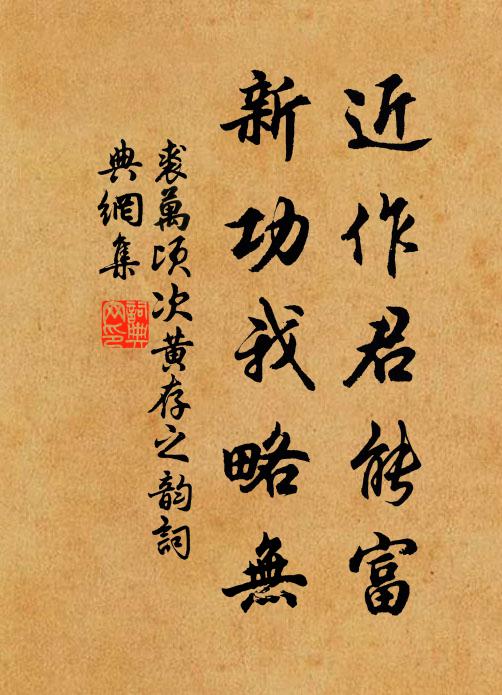 近作君能富
新功我略無
裘萬頃次黃存之韵詞
典網集
詞典
网印